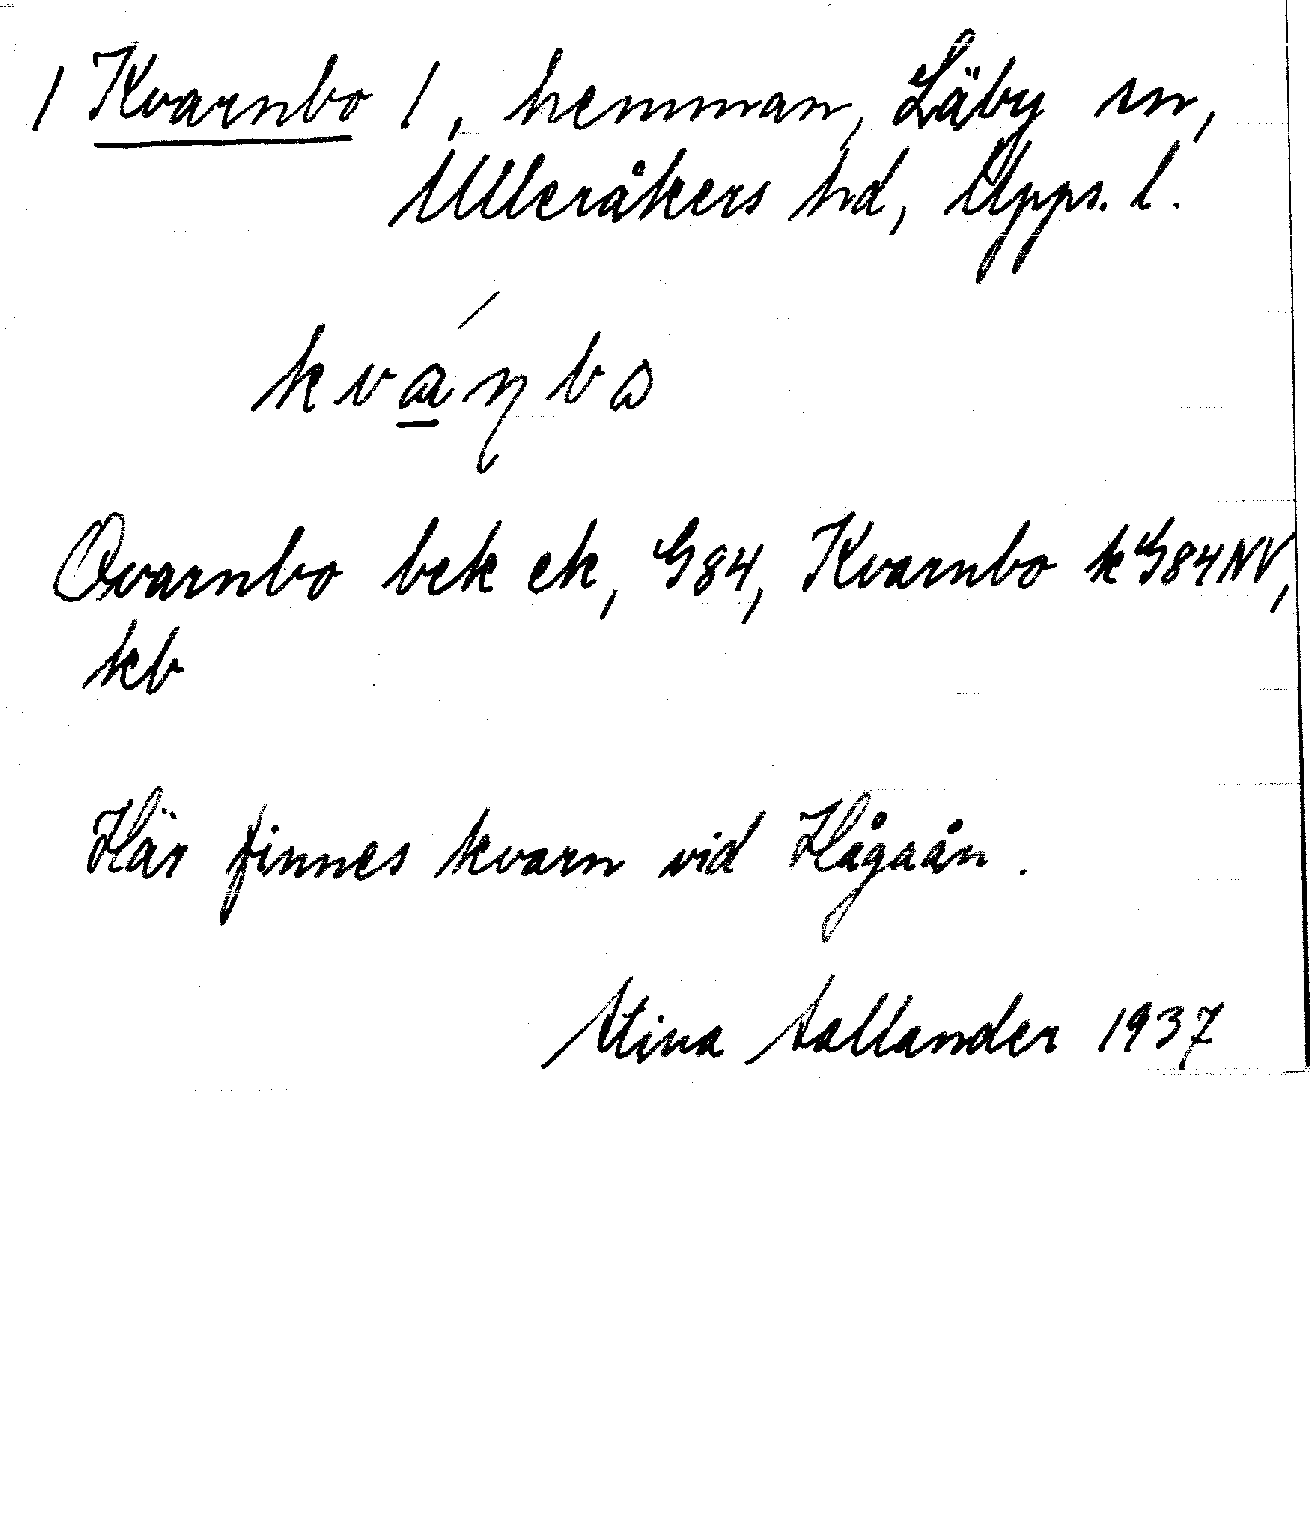 / Kvarnbo /, hemman, Läby sn,
Ulleråkers hd, Upps. l.
kváṇbo
Qvarnbo bek ek, G84, Kvarnbo k G84NV,
kb
Här finnes kvarn vid Hågaån.
Stina Sallander 1937